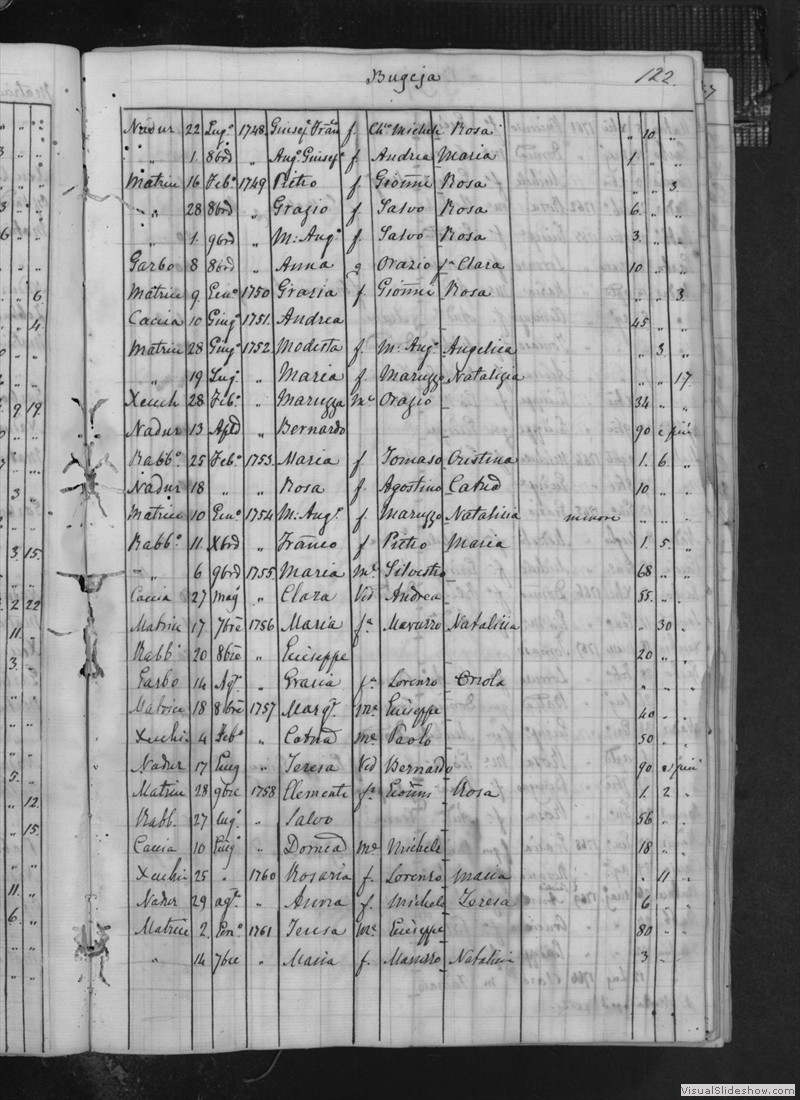 Bugeja 122
Nadur 22 Lugo 1748 Guisej Franc f. Michele Rosa " 10 "
" 1. 8bre " Ango Guisepe f Andrea Maria 1 " "
Matrice 16 Febo 1749 Pietro f Gionni Rosa " " 3
" 28 8bre " Grazio f Salvo Rosa 6. " "
" 1. 9bre " M: Ango f Salvo Rosa 3. " "
Garbo 8 8bre " Anna Orazio Clara 10 " "
Matrice 9 Geno 1750 Grazia f. Gionni Rosa " " 3
Caccia 10 Giugo 1751. Andrea 45 " "
Matrice 28 Giugo 1752. Modesta f. M: Ango Angelica " 3. "
" 19 Lugo " Maria f Maruzzo Natalizia " " 17
Xeuch 28 Febo " Maruzza Me Orazio 34 " "
Nadur 13 Aple " Bernardo 90 e piu
Rabbo 25 Febo 1753. Maria f Tomaso Cristina 1. 6. "
Nadur 18 " " Rosa f. Agostino Catna 10 " "
Matrice 10 Geno 1754 M: Anga f. Maruzzo Natalicia minore " " "
Rabbo 11 Xbre " Franco f Pietro Maria 1. 5. "
" 6 9bre 1755. Maria Me Silvestro 68 " "
Caccia 27 Mag " Clara Vid Andrea 55. " "
Matrice 17 7bre 1756 Maria fa Mavurro Natalicia " 30 "
Rabbo 20 8bre " Guiseppe 20 " "
Garbo 14 Agto " Gracia fa Lorenzo Orsola " " "
18 8bre 1757 Marga Me Guiseppe 40 " "
Xeuchi 4 Febo " Catna Me Paolo 50 " "
Nadur 17 " Teresa Vid Bernardo 90 e piu
Matrice 28 9bre 1758 Clemente fa Gionni Rosa 1. 2 "
Rabb. 27 Lugo " Salvo 56 " "
Caccia 10 " Domca Me Michele 18 " "
Xeuchi 25 " 1760 Rosaria f. Lorenzo Maria " 11 "
Nadur 29 agto " Anna f. Michele Teresa 6 " "
Matrice 2. Geno 1761 Teresa Me Guiseppe 80 " "
" 14 7bre " Maria f. Masurro Natalicia 3 " "
VisualSlideshow.com